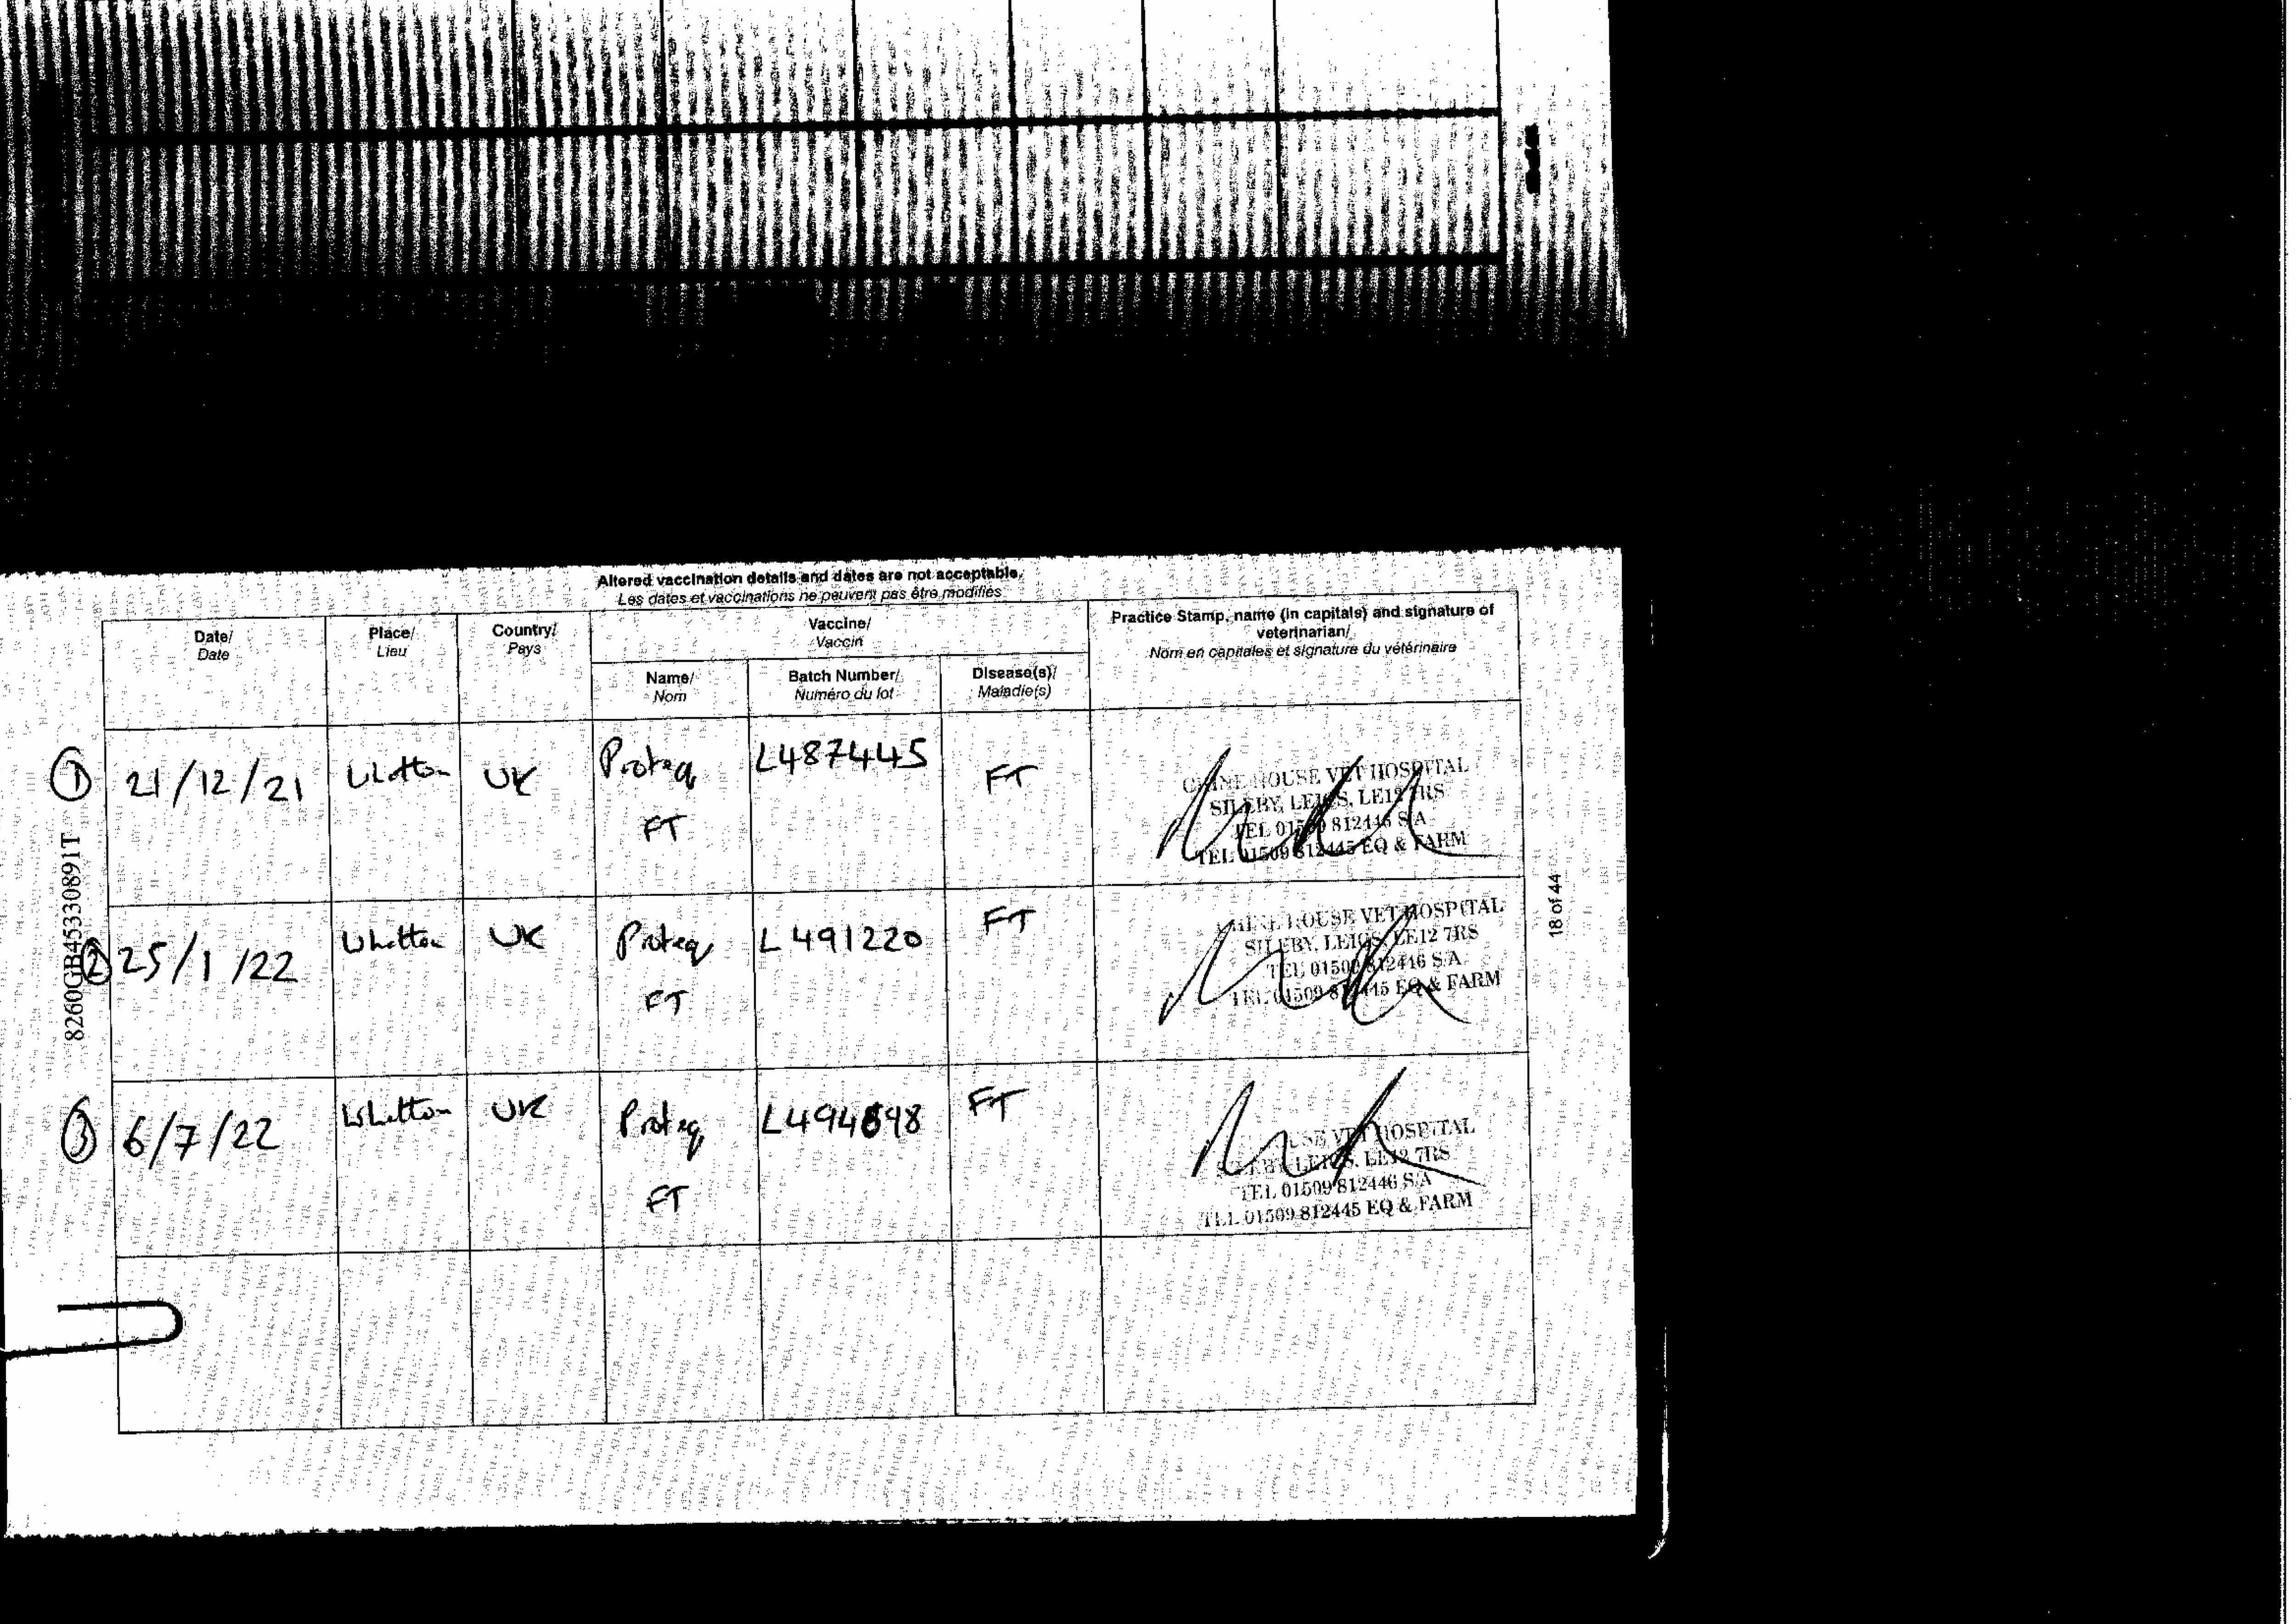 Altered vaccination details and dates are not acceptable.
Les dates et vaccinations ne peuvent pas être modifiés
Date/
Date
Place/
Lieu
Country/
Pays
Vaccine/
Vaccin
Name/
Nom
Batch Number/
Numéro du lot
Disease(s)/
Maladie(s)
Practice Stamp, name (in capitals) and signature of
veterinarian/
Nom en capitales et signature du vétérinaire
① 21/12/21 Whatton UK Proteq L487445 FT
FT
HOUSE VET HOSPITAL
SILEBY, LEICS, LE12 7RS
TEL 01509 812446 S/A
TEL 01509 812445 EQ & FARM
② 25/1/22 Whatton UK Proteq L491220 FT
FT
HOUSE VET HOSPITAL
SILEBY, LEICS, LE12 7RS
TEL 01509 812446 S/A
TEL 01509 812445 EQ & FARM
③ 6/7/22 Whatton UK Proteq L494698 FT
FT
VET HOSPITAL
SILEBY, LEICS, LE12 7RS
TEL 01509 812446 S/A
TEL 01509 812445 EQ & FARM
8260GB45330891T
18 of 44